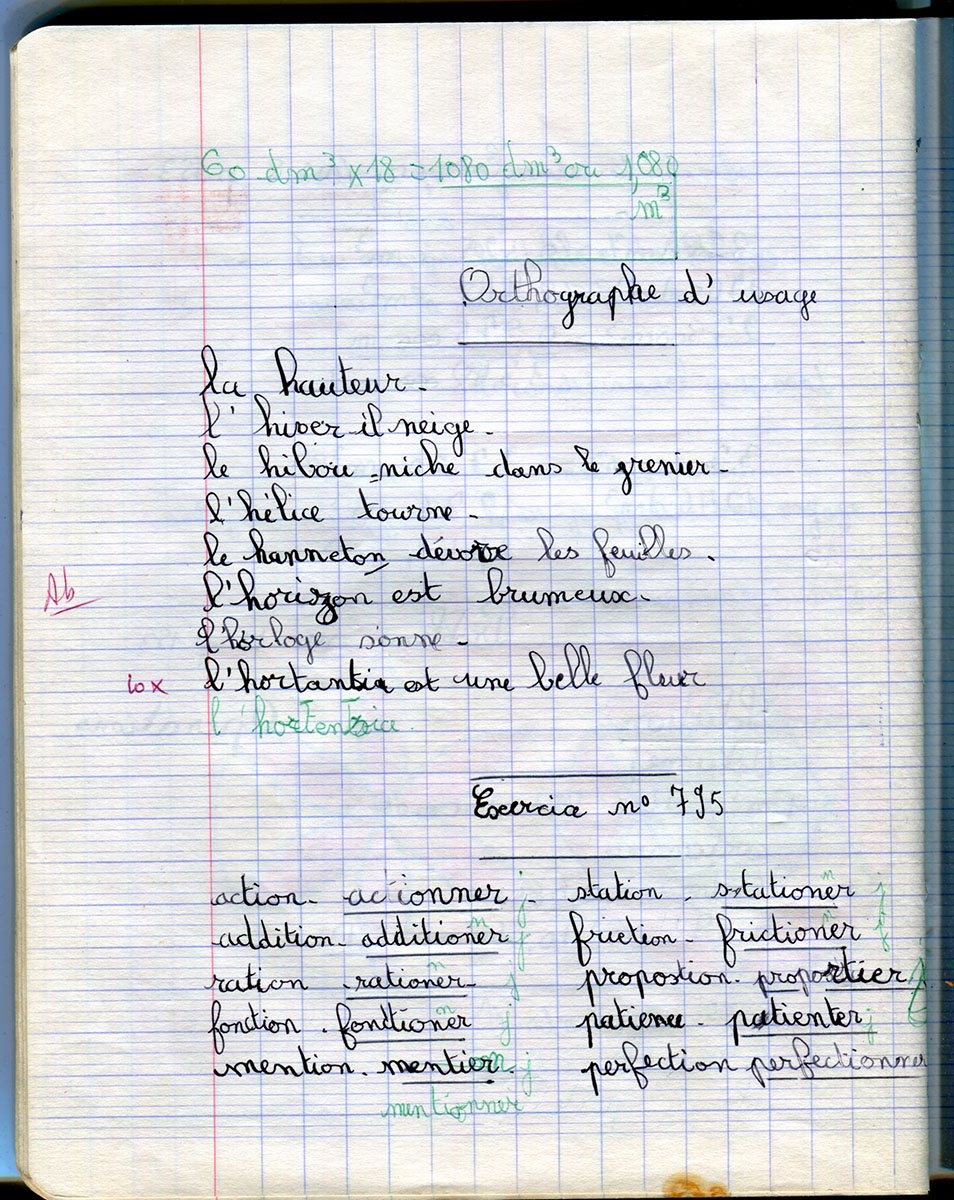 60 dm³ × 18 = 1080 dm³ ou 1,080
m³
Orthographe d'usage
la hauteur.
l'hiver il neige.
le hibou niche dans le grenier.
l'hélice tourne.
le hanneton dévore les feuilles.
Ab l'horizon est brumeux.
l'horloge sonne.
10x l'hortantia est une belle fleur
l'hortensia.
Exercice nº 795
action. actionner j. station. stationner j
addition. additionner j friction. frictionner j
ration rationner. j proposition. proportier j
fonction. fonctionner j patience. patienter j
mention. mentier. j perfection perfectionner
mentionner